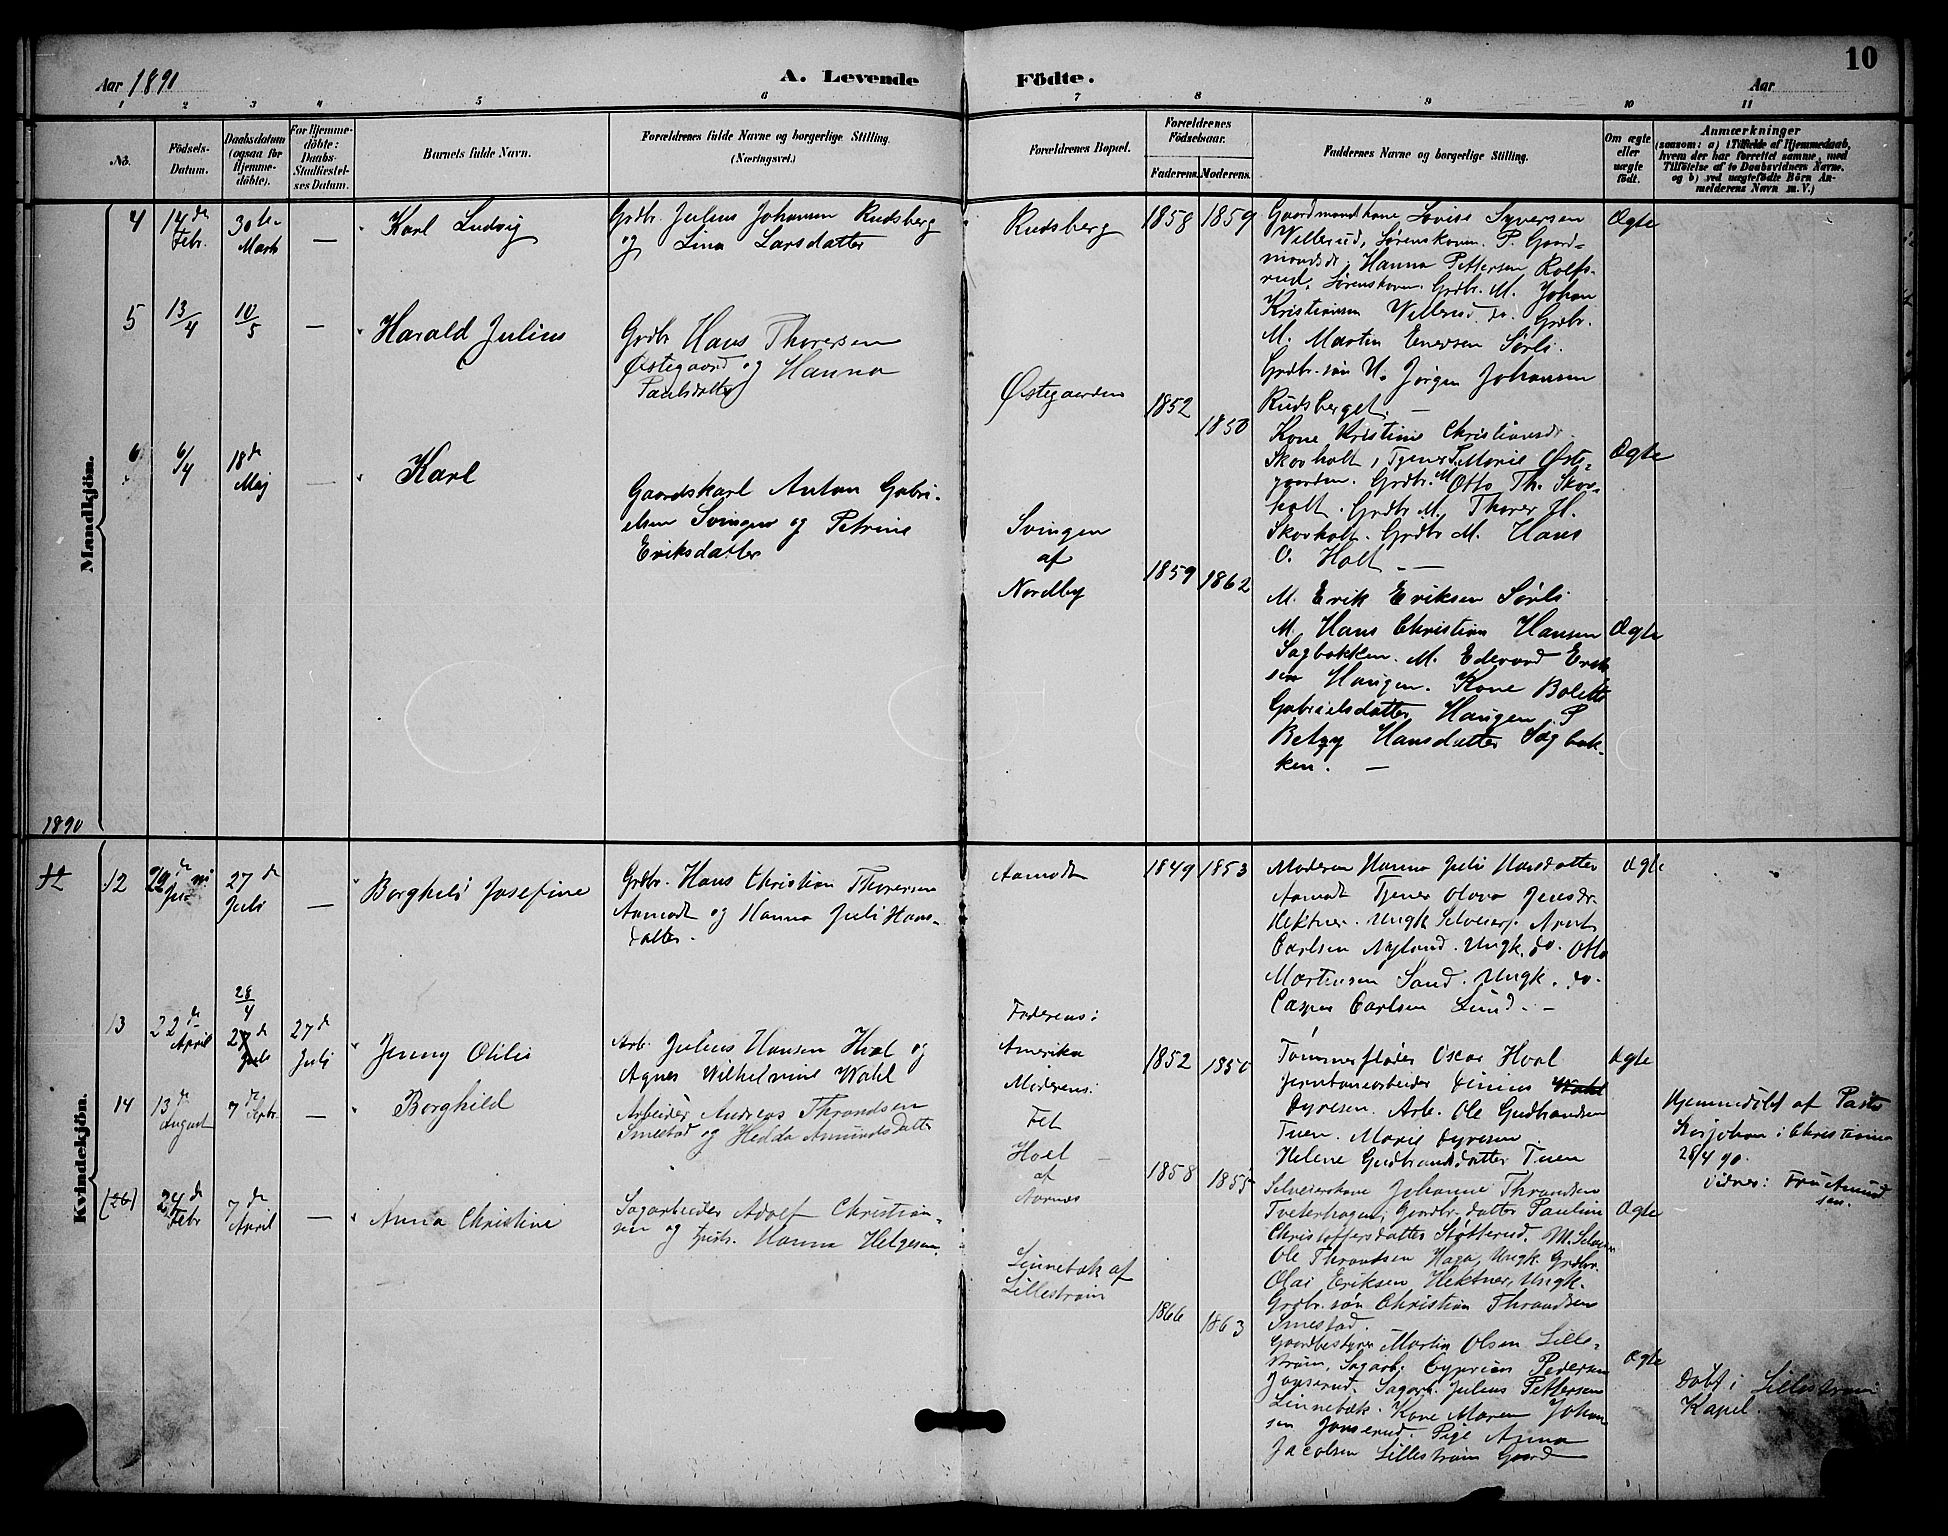 Aar 1891
A. Levende
Födte.
Aar
10
1 2 3 4 5 6 7 8 9 10 11
No.
Födsels-
Datum.
Daabsdatum
(ogsaa for
Hjemme-
döbte).
For Hjemme-
döbte:
Daabs-
Stadfæstel-
ses Datum.
Barnets fulde Navn.
Forældrenes fulde Navne og borgerlige Stilling.
(Næringsvei.)
Forældrenes Bopæl.
Forældrenes
Födselsaar.
Faderens. Moderens.
Faddernes Navne og borgerlige Stilling.
Om ægte
eller
uægte
födt.
Anmærkninger
(saasom: a) i Tilfælde af Hjemmedaab,
hvem der har forrettet samme, med
Tilföielse af to Daabsvidners Navne,
og b) ved uægtefödte Börn An-
melderens Navn m. V.)
Mandkjön.
4
14de
Febr.
30te
Marts
—
Karl Ludvig
Grdbr. Julius Johansen Rudsberg
og Lina Larsdatter
Rudsberg
1858 1859
Gaardmandskone Lovise Syversen
Villerud, Sørenskovn. P. Gaard-
mandsdr. Hanna Pettersen Rolfs-
rud, Sørenskovn. Grdbr. M. Johan
Kristiansen Villerud, do. Grdbr.
M. Martin Enersen Sørli.
Grdbr. søn U. Jørgen Johansen
Rudsberget. —
Ægte
5
13/4
10/5
—
Harald Julius
Grdbr. Hans Thoresen
Østegaard og Hanna
Paulsdatter
Østegaarden
1852
1850
Kone Kristine Christiansdr.
Skovholt, Tjener P. Marie Øste-
gaarden. Grdbr. M. Otto Th. Skov-
holt. Grdbr. M. Thorer H.
Skovholt. Grdbr. M. Hans
O. Holt —
Ægte
6
6/4
18de
Maj
—
Karl
Gaardskarl Anton Gabri-
elsen Svingen og Petrine
Eriksdatter
Svingen
af
Nordby
1859 1862
M. Erik Eriksen Sørli
M. Hans Christian Hansen
Sagbakken. M. Edevard Erik-
sen Haugen. Kone Bolette
Gabrielsdatter Haugen. P.
Betzy Hansdatter Sagbak-
ken. —
Ægte
1890
Kvindekjön.
12
12
22de
Juni
27de
Juli
—
Borghild Josefine
Grdbr. Hans Christian Thoresen
Aamodt og Hanna Juli Hans-
datter.
Aamodt
1849 1853
Moderen Hanna Juli Hansdatter
Aamodt Tjener Olava Jensdr.
Hektner. Ungk. Selveierf. Arent
Carlsen Nyland. Ungk. do. Otto
Martinsen Sand. Ungk. do.
Casper Carlsen Lund. —
Ægte
13
22de
April
28/4
27de
Juli
27de
Juli
Jenny Otilie
Arb. Julius Hansen Hval og
Agnes Wilhelmine Wahl
Faderens:
Amerika
Moderens:
Fet
1852 1850
Tømmerfløder Oscar Hval
Jernbanearbeider Dinius Wahl
Dyresen. Arb. Ole Gudbrandsen
Tuen. Marie Dyresen
Helene Gudbrandsdatter Tuen
Ægte
Hjemmedøbt af Pastor
i Christiania
28/4 90.
Vidner: Fru Amund-
sen.
14
13de
August
7de
Septbr.
—
Borghild
Arbeider Andreas Thrandsen
Smestad og Hedda Amundsdatter
Hval
af
Aarnes
1858 1855
Selveierkone Johanne Thrandsen
Tveterhagen, Gaardbr. datter Pauline
Christoffersdatter Støtterud. M. Selveier
Ole Thrandsen Haga, Ungk. Grdbr.
Olai Eriksen Hektner, Ungk.
Grdbr. søn Christian Thrandsen
Smestad.
Ægte
(26)
24de
Febr
7de
April
—
Anna Christine
Sagarbeider Adolf Christian-
sen og Hustr. Hanna Helgesen
Linnebæk af
Lillestrøm
1866 1863
Gaardbestyrer Martin Olsen Lille-
strøm, Sagarb. Cyprian Pedersen
Jonserud. Sagarb. Julius Pettersen
Linnebæk. Kone Maren Johan
sen Jonserud. Pige Anna
Jacobsen Lillestrøm Gaard
Ægte
Døbt i Lillestrøm
Kapel.